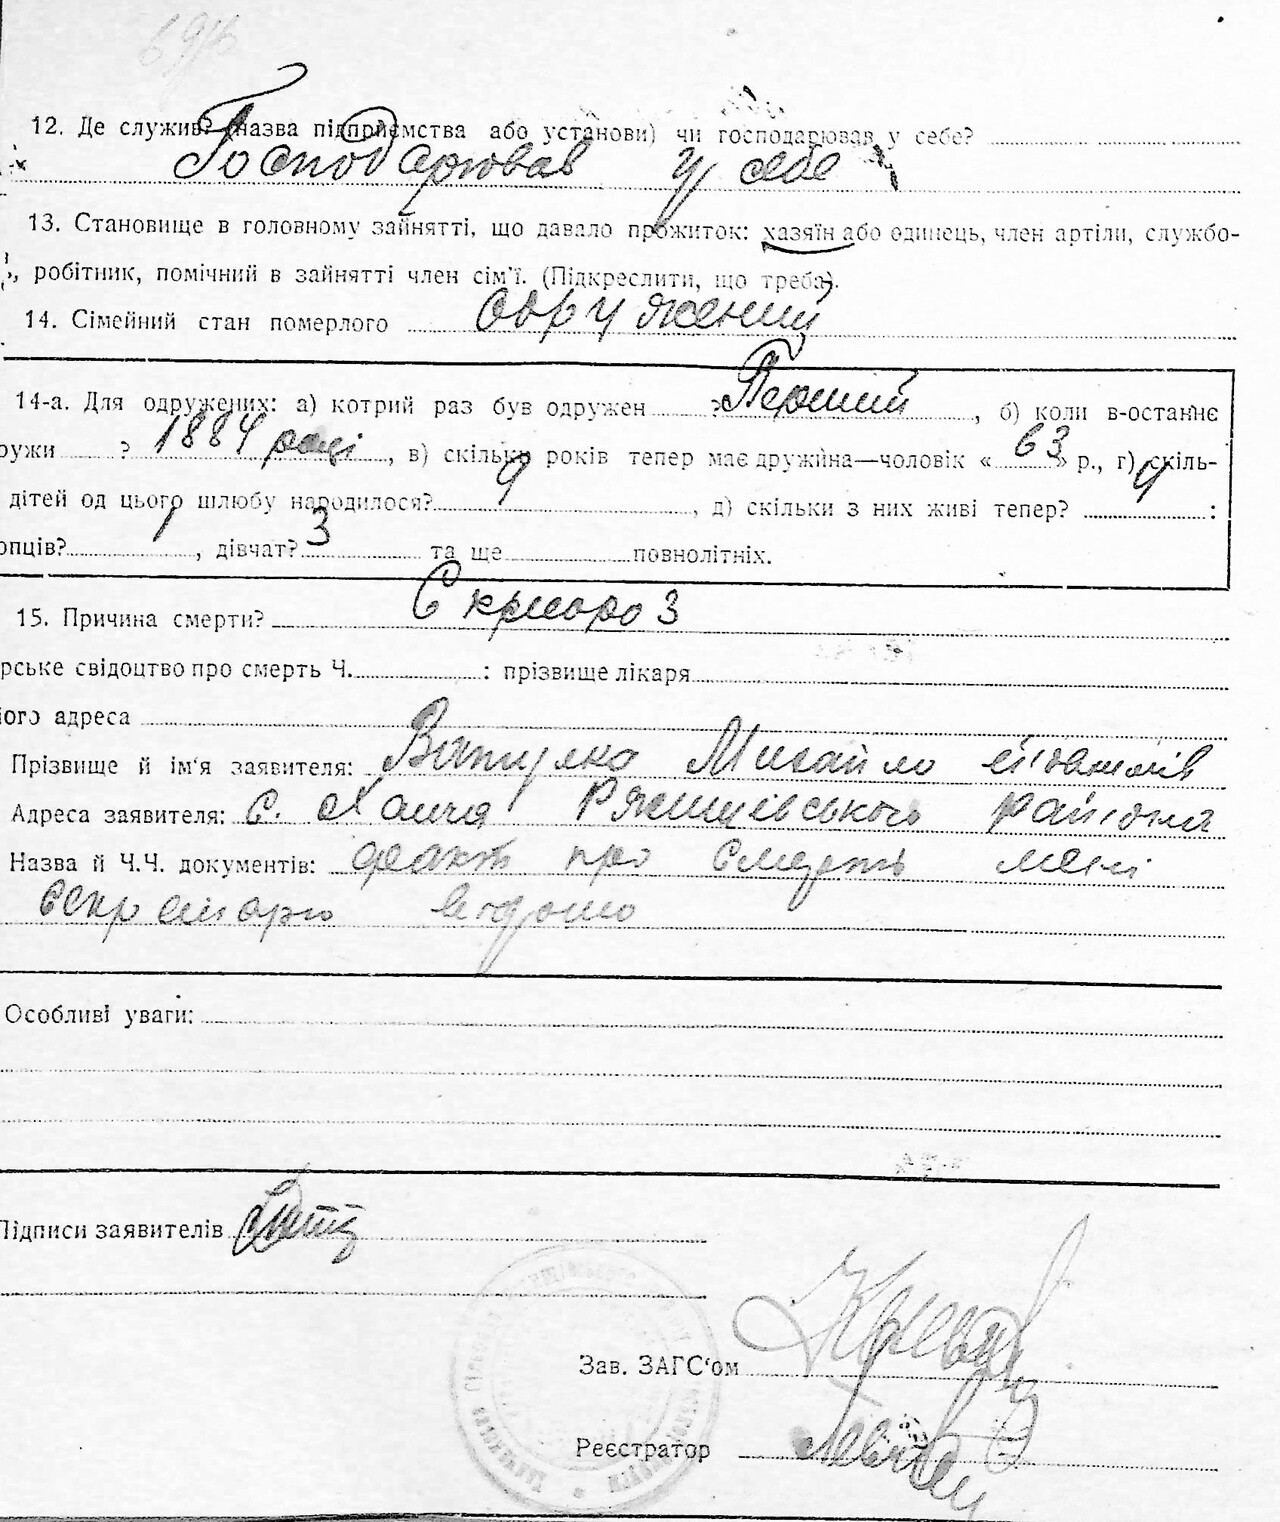 12. Де служив? (назва підприємства або установи) чи господарював у себе?
Господарював у себе
13. Становище в головному зайнятті, що давало прожиток: хазяїн або одинець, член артіли, службо-
, робітник, помічний в зайнятті член сім'ї. (Підкреслити, що треба).
14. Сімейний стан померлого одружений
14-а. Для одружених: а) котрий раз був одружен ? Перший, б) коли в-останнє
ружи ? 1884 році, в) скільки років тепер має дружина—чоловік « 63 » р., г) скіль-
дітей од цього шлюбу народилося? 9, д) скільки з них живі тепер? 4 :
опців? 1, дівчат? 3 та ще повнолітніх.
15. Причина смерти?
рське свідоцтво про смерть Ч. : прізвище лікаря
його адреса
Прізвище й ім'я заявителя: Михайло
Адреса заявителя: с. Ржищівського району
Назва й Ч.Ч. документів: факт про смерть мені
секретарю відомо
Особливі уваги:
Підписи заявителів
Зав. ЗАГС'ом
Реєстратор